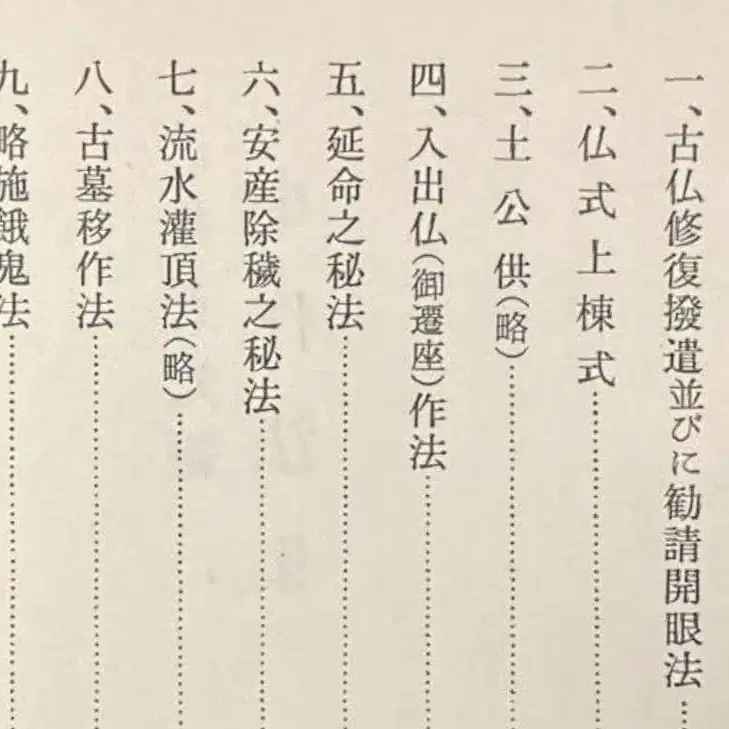 一、古仏修復撥遣並びに勧請開眼法
二、仏式上棟式
三、土公供(略)
四、入出仏(御遷座)作法
五、延命之秘法
六、安産除穢之秘法
七、流水灌頂法(略)
八、古墓移作法
九、略施餓鬼法